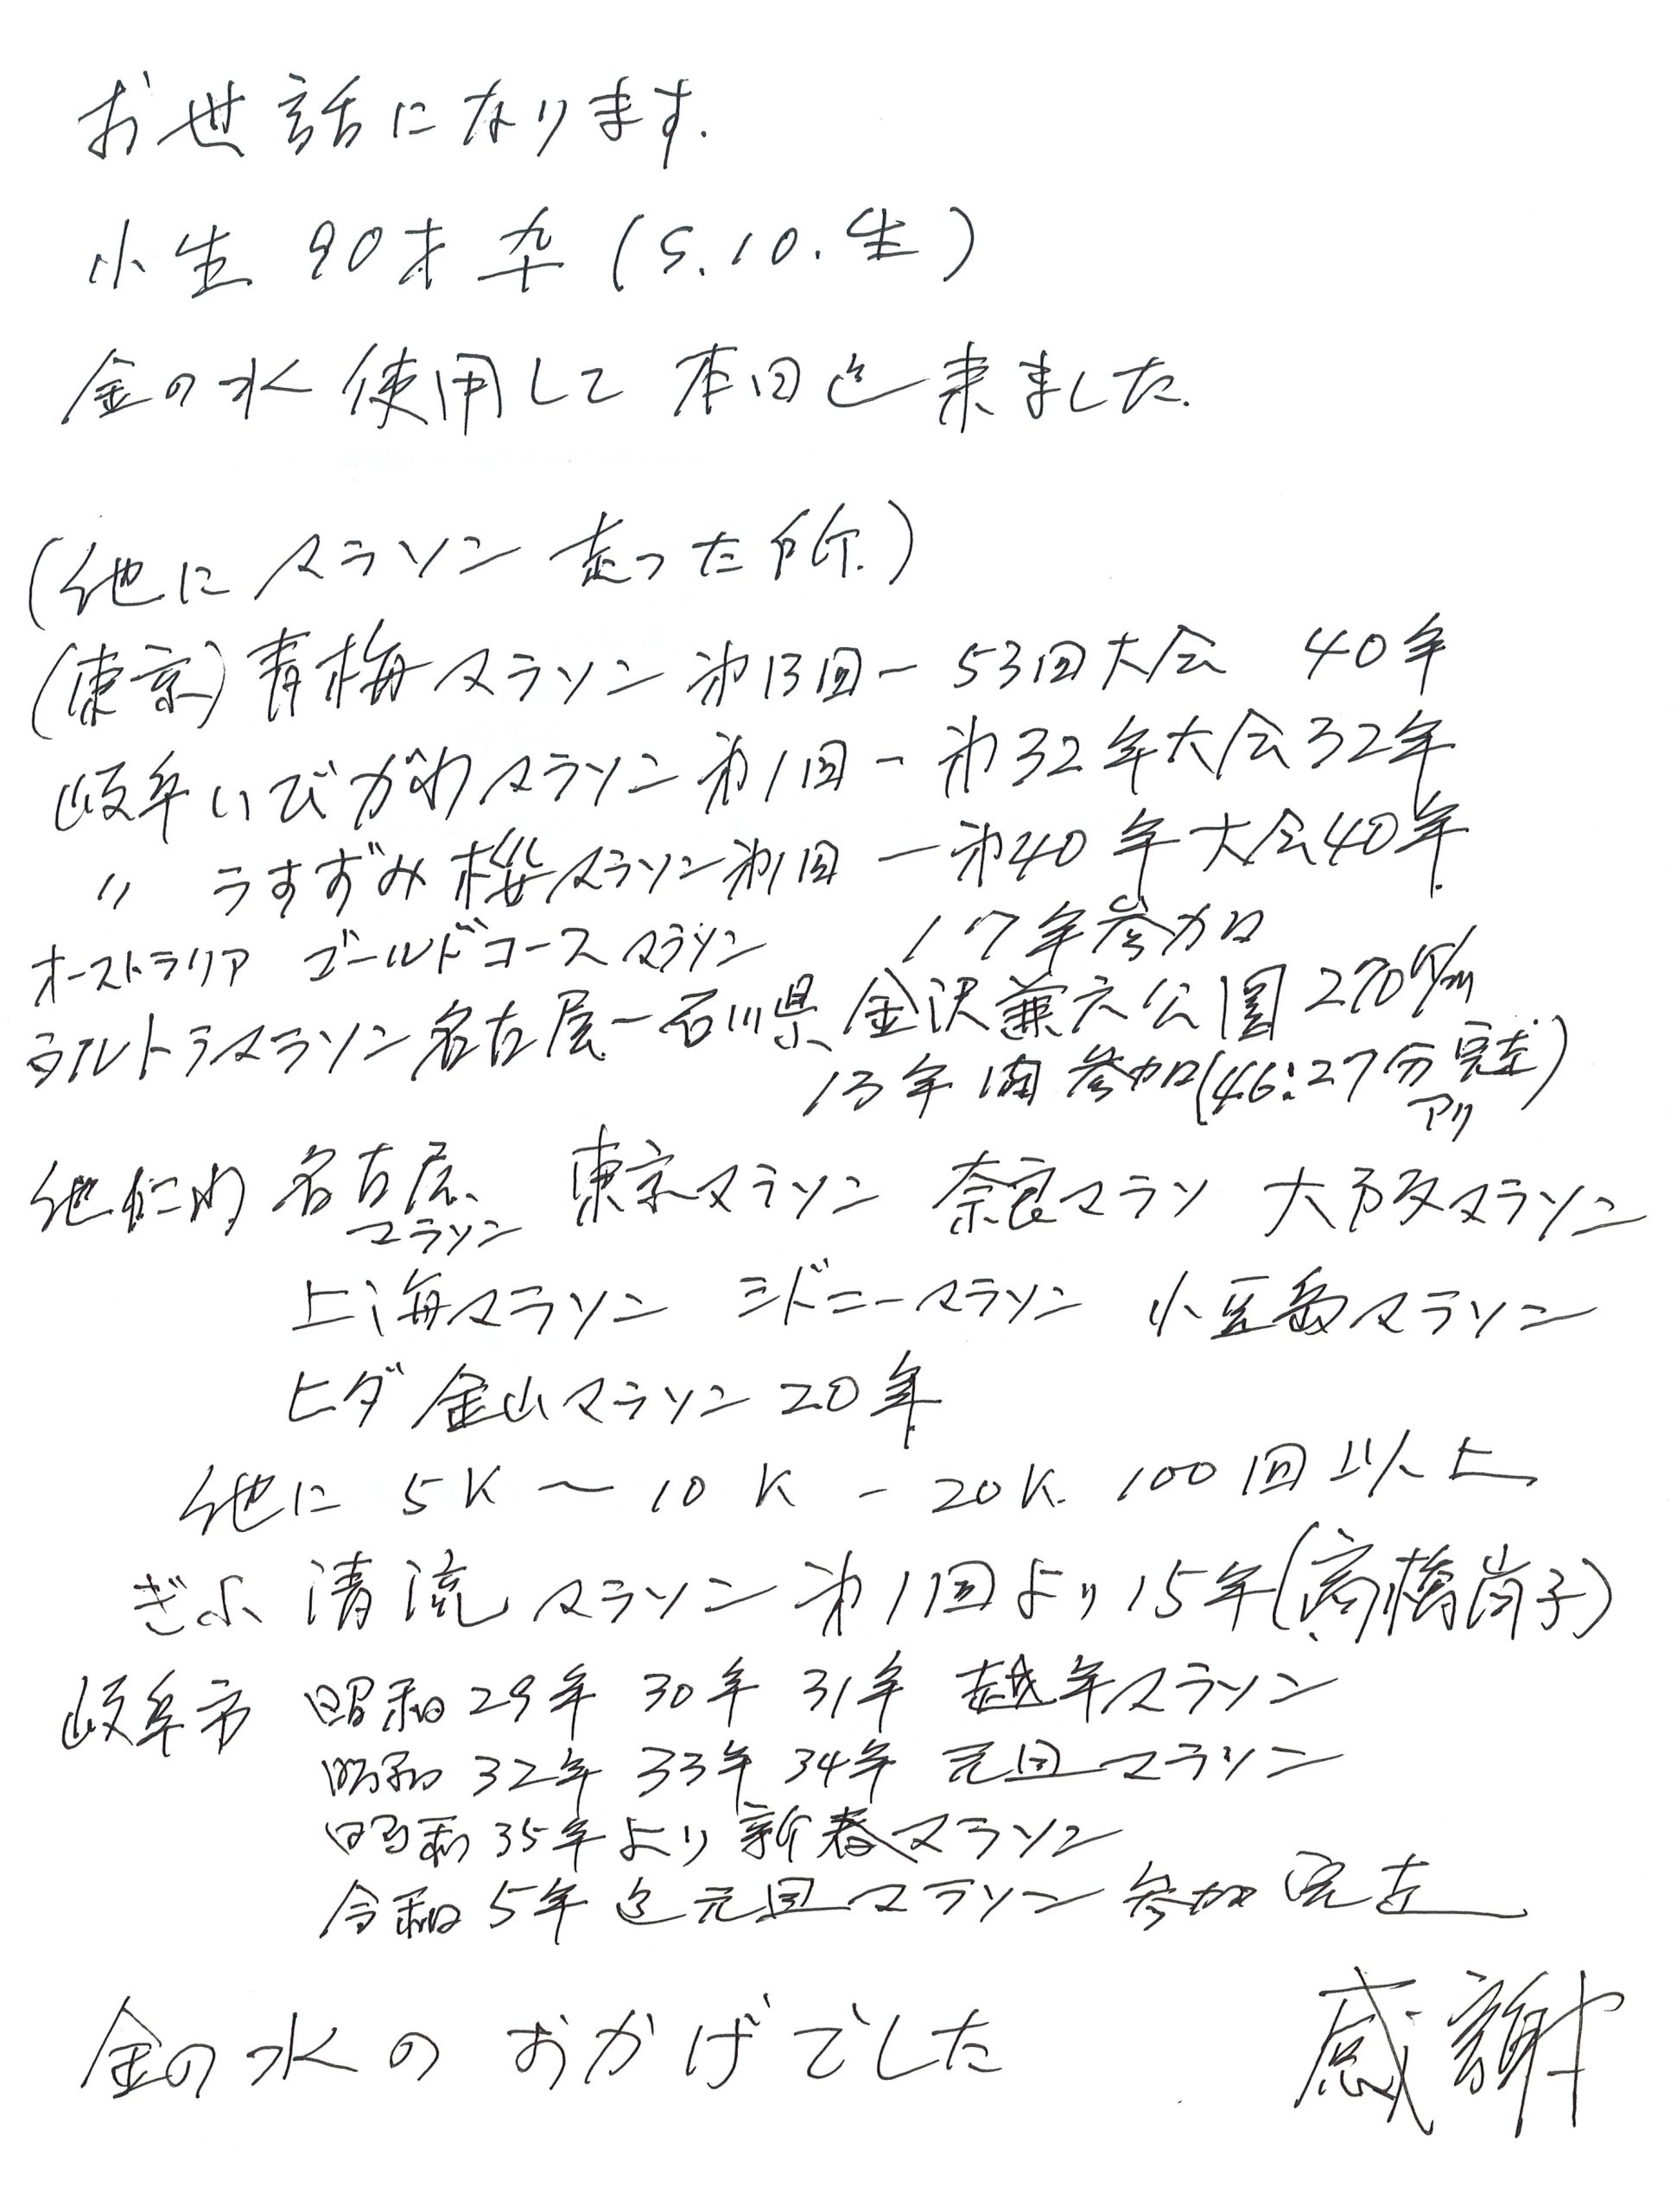 お世話になります.
小生 90才 卆 (S.10.生)
金の水 使用して 本日迄来ました.
(他に マラソン 走った所.)
(東京)青梅マラソン 第13回ー53回大会 40年
岐阜いびがわマラソン 第1回ー第32年大会32年
〃 うすずみ桜マラソン第1回ー第40年大会40年
オーストラリア ゴールドコースマラソン 17年参加
ウルトラマラソン名古屋ー石川県金沢兼六公園270㎞
13年間参加(46:27分完走)
アリ
他に 名古屋 東京マラソン 奈良マラソ 大阪マラソン
マラソン
上海マラソン シドニーマラソン 小豆島マラソン
ヒダ 金山マラソン 20年
他に 5K〜10K-20K. 100回以上
ぎふ 清流マラソン 第1回より15年(高橋尚子)
岐阜市 昭和29年 30年 31年 越年マラソン
昭和 32年 33年 34年 元旦マラソン
昭和 35年より 新春マラソン
令和 5年迄元旦マラソン 参加 完走
金の水の おかげでした 感謝